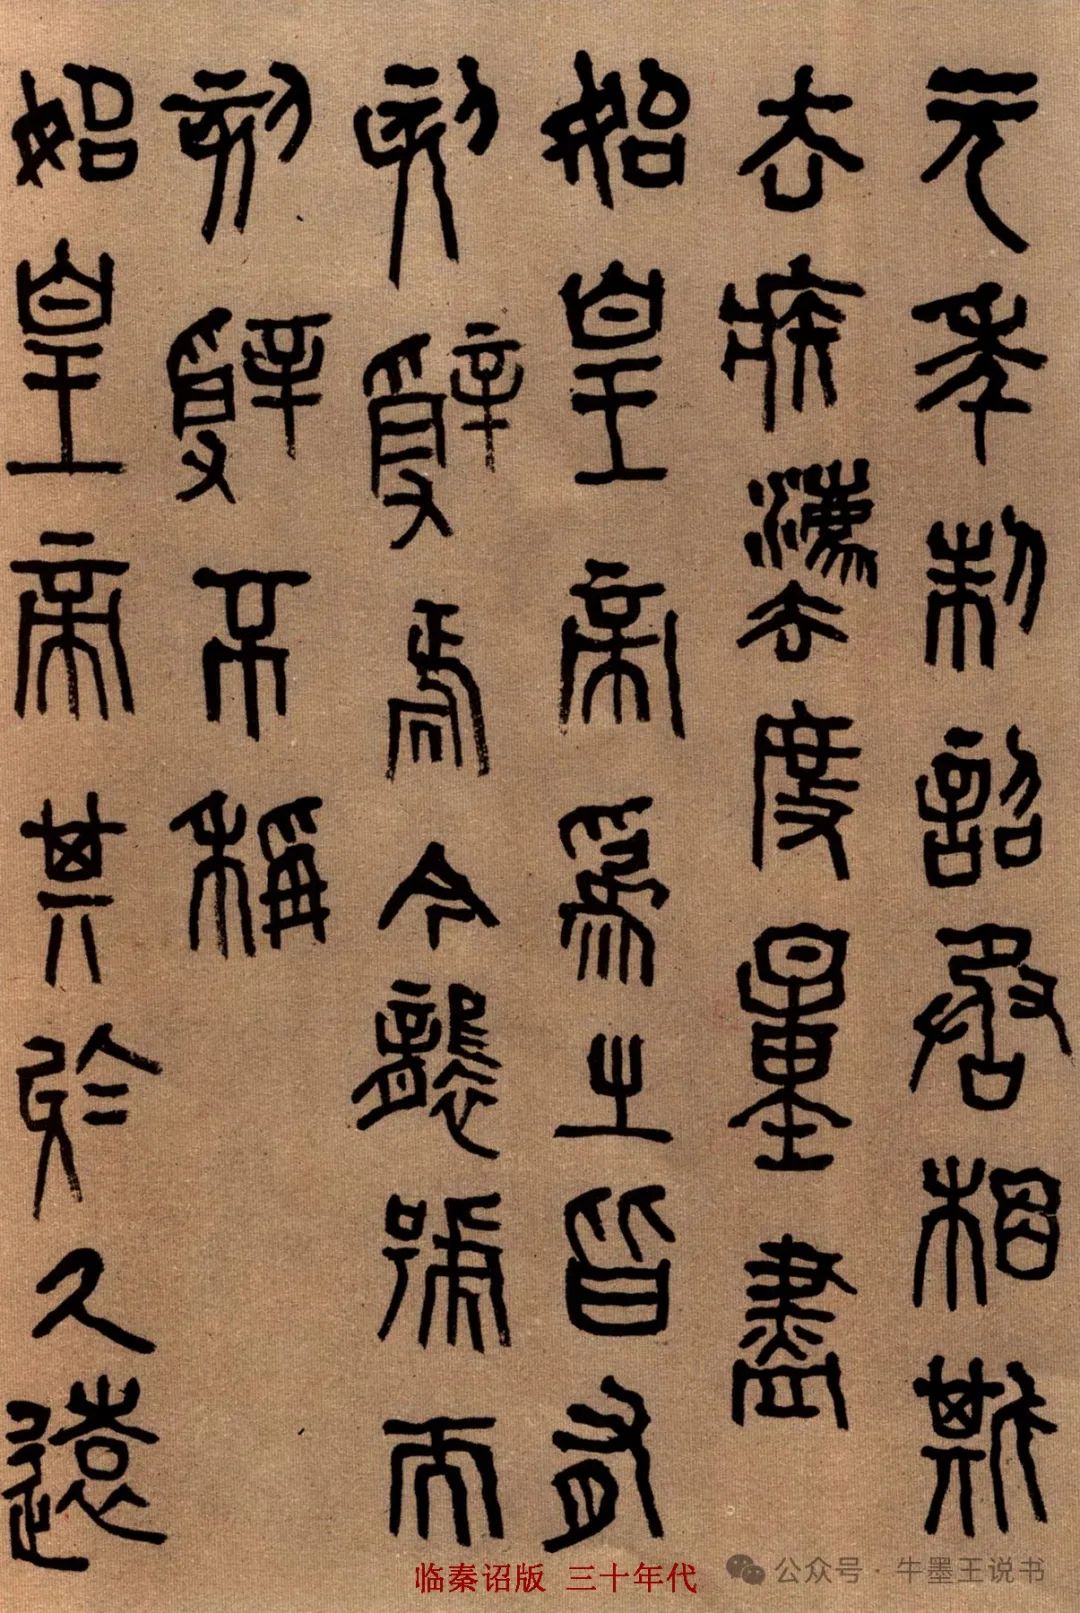 元年制詔丞相斯
去疾灋度量盡
始皇帝爲之皆有
刻辭焉今襲號而
刻辭不稱
始皇帝其於久遠
临秦诏版 三十年代
公众号·牛墨王说书